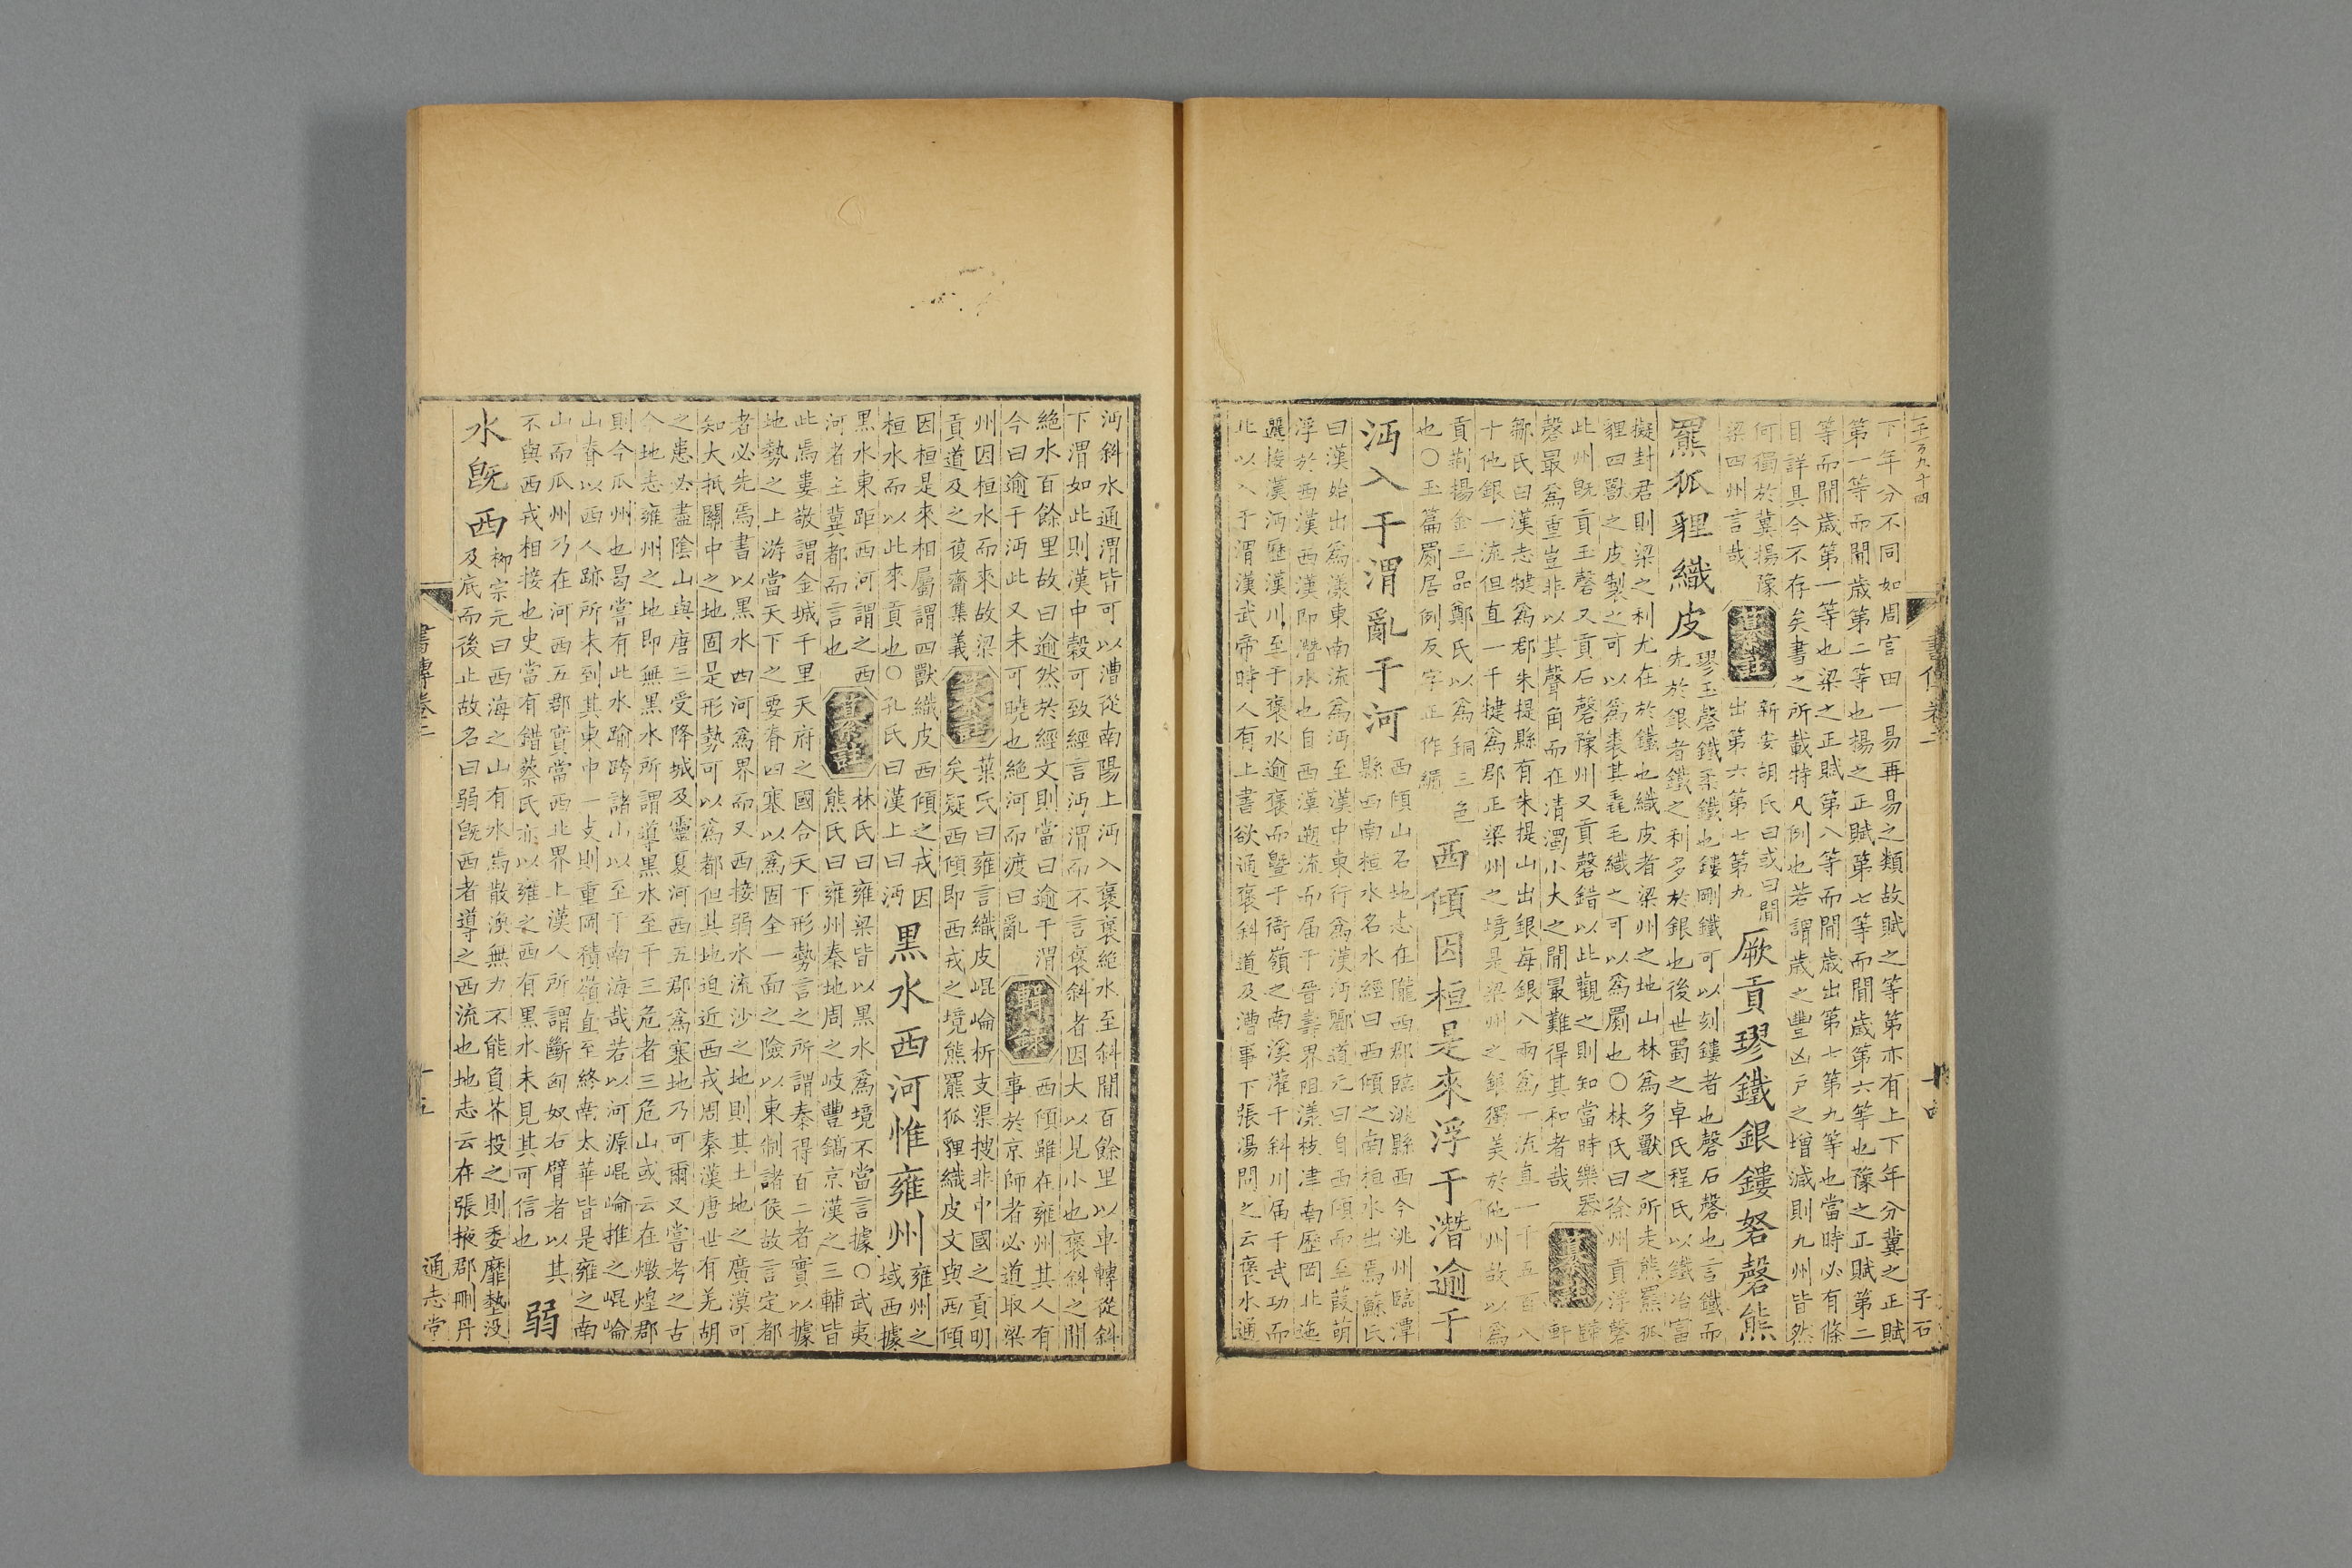 下年分不同如周官田一易再易之類故賦之等第亦有上下年分冀之正賦
第一等而間歲第二等也揚之正賦第七等而間歲第六等也豫之正賦第二
等而間歲第一等也梁之正賦第八等而間歲出第七第九等也當時必有條
目詳具今不存矣書之所載特凡例也若謂歲之豐凶戶之增減則九州皆然
何獨於冀揚豫
梁四州言哉
纂註
新安胡氏曰或曰間
出第六第七第九
厥貢璆鐵銀鏤砮磬熊
羆狐狸織皮
璆玉磬鐵柔鐵也鏤剛鐵可以刻鏤者也磬石磬也言鐵而
先於銀者鐵之利多於銀也後世蜀之卓氏程氏以鐵冶富
擬封君則梁之利尤在於鐵也織皮者梁州之地山林為多獸之所走熊羆狐
貍四獸之皮製之可以為裘其毳毛織之可以為罽也○林氏曰徐州貢浮磬
此州旣貢玉磬又貢石磬豫州又貢磬錯以此觀之則知當時樂器
磬最為重豈非以其聲角而在清濁小大之間最難得其和者哉
纂註
歸軒
鄒氏曰漢志犍為郡朱提縣有朱提山出銀每銀八兩為一流直一千五百八
十他銀一流但直一千犍為郡正梁州之境是梁州之銀獨美於他州故以為
貢荆揚金三品鄭氏以為銅三色
也○玉篇罽居例反字正作𦇧
西傾因桓是來浮于潛逾于
沔入于渭亂于河
西傾山名地志在隴西郡臨洮縣西今洮州臨潭
縣西南桓水名水經曰西傾之南桓水出焉蘇氏
曰漢始出為漾東南流為沔至漢中東行為漢沔酈道元曰自西傾而至葭萌
浮於西漢西漢即潛水也自西漢遡流而届于晉壽界阻漾枝津南歷岡北迤
邐接漢沔歷漢川至于褒水逾褒而曁于衙嶺之南溪灌于斜川届于武功而
北以入于渭漢武帝時人有上書欲通褒斜道及漕事下張湯問之云褒水通
沔斜水通渭皆可以漕從南陽上沔入褒褒絶水至斜間百餘里以車轉從斜
下渭如此則漢中穀可致經言沔渭而不言褒斜者因大以見小也褒斜之間
絶水百餘里故曰逾然於經文則當曰逾于渭
今曰逾于沔此又未可曉也絶河而渡曰亂
輯錄
西傾雖在雍州其人有
事於京師者必道取梁
州因桓水而來故梁
貢道及之復齋集義
纂註
葉氏曰雍言織皮崐崘析支渠搜非中國之貢明
矣疑西傾即西戎之境熊羆狐狸織皮文與西傾
因桓是來相屬謂四獸織皮西傾之戎因
桓水而以此來貢也○孔氏曰漢上曰沔
黑水西河惟雍州
雍州之
域西據
黑水東距西河謂之西
河者主冀都而言也
纂註
林氏曰雍梁皆以黑水為境不當言據○武夷
熊氏曰雍州秦地周之岐豐鎬京漢之三輔皆
此焉婁敬謂金城千里天府之國合天下形勢言之所謂秦得百二者實以據
地勢之上游當天下之要脊四塞以為固全一面之險以東制諸侯故言定都
者必先焉書以黑水西河為界而又西接弱水流沙之地則其土地之廣漠可
知大抵關中之地固是形勢可以為都但其地迫近西戎周秦漢唐世有羌胡
之患必盡陰山與唐三受降城及靈夏河西五郡為塞地乃可爾又嘗考之古
今地志雍州之地即無黑水所謂導黑水至于三危者三危山或云在燉煌郡
則今瓜州也曷嘗有此水踰跨諸山以至于南海哉若以河源崐崘推之崐崘
山脊以西人跡所未到其東中一支則重岡積嶺直至終南太華皆是雍之南
山而瓜州乃在河西五郡實當西北界上漢人所謂斷匈奴右臂者以其
不與西戎相接也史當有錯蔡氏亦以雍之西有黑水未見其可信也
弱
水旣西
柳宗元曰西海之山有水焉散渙無力不能負芥投之則委靡墊没
及底而後止故名曰弱旣西者導之西流也地志云在張掖郡刪丹
書傳卷二
十五
通志堂